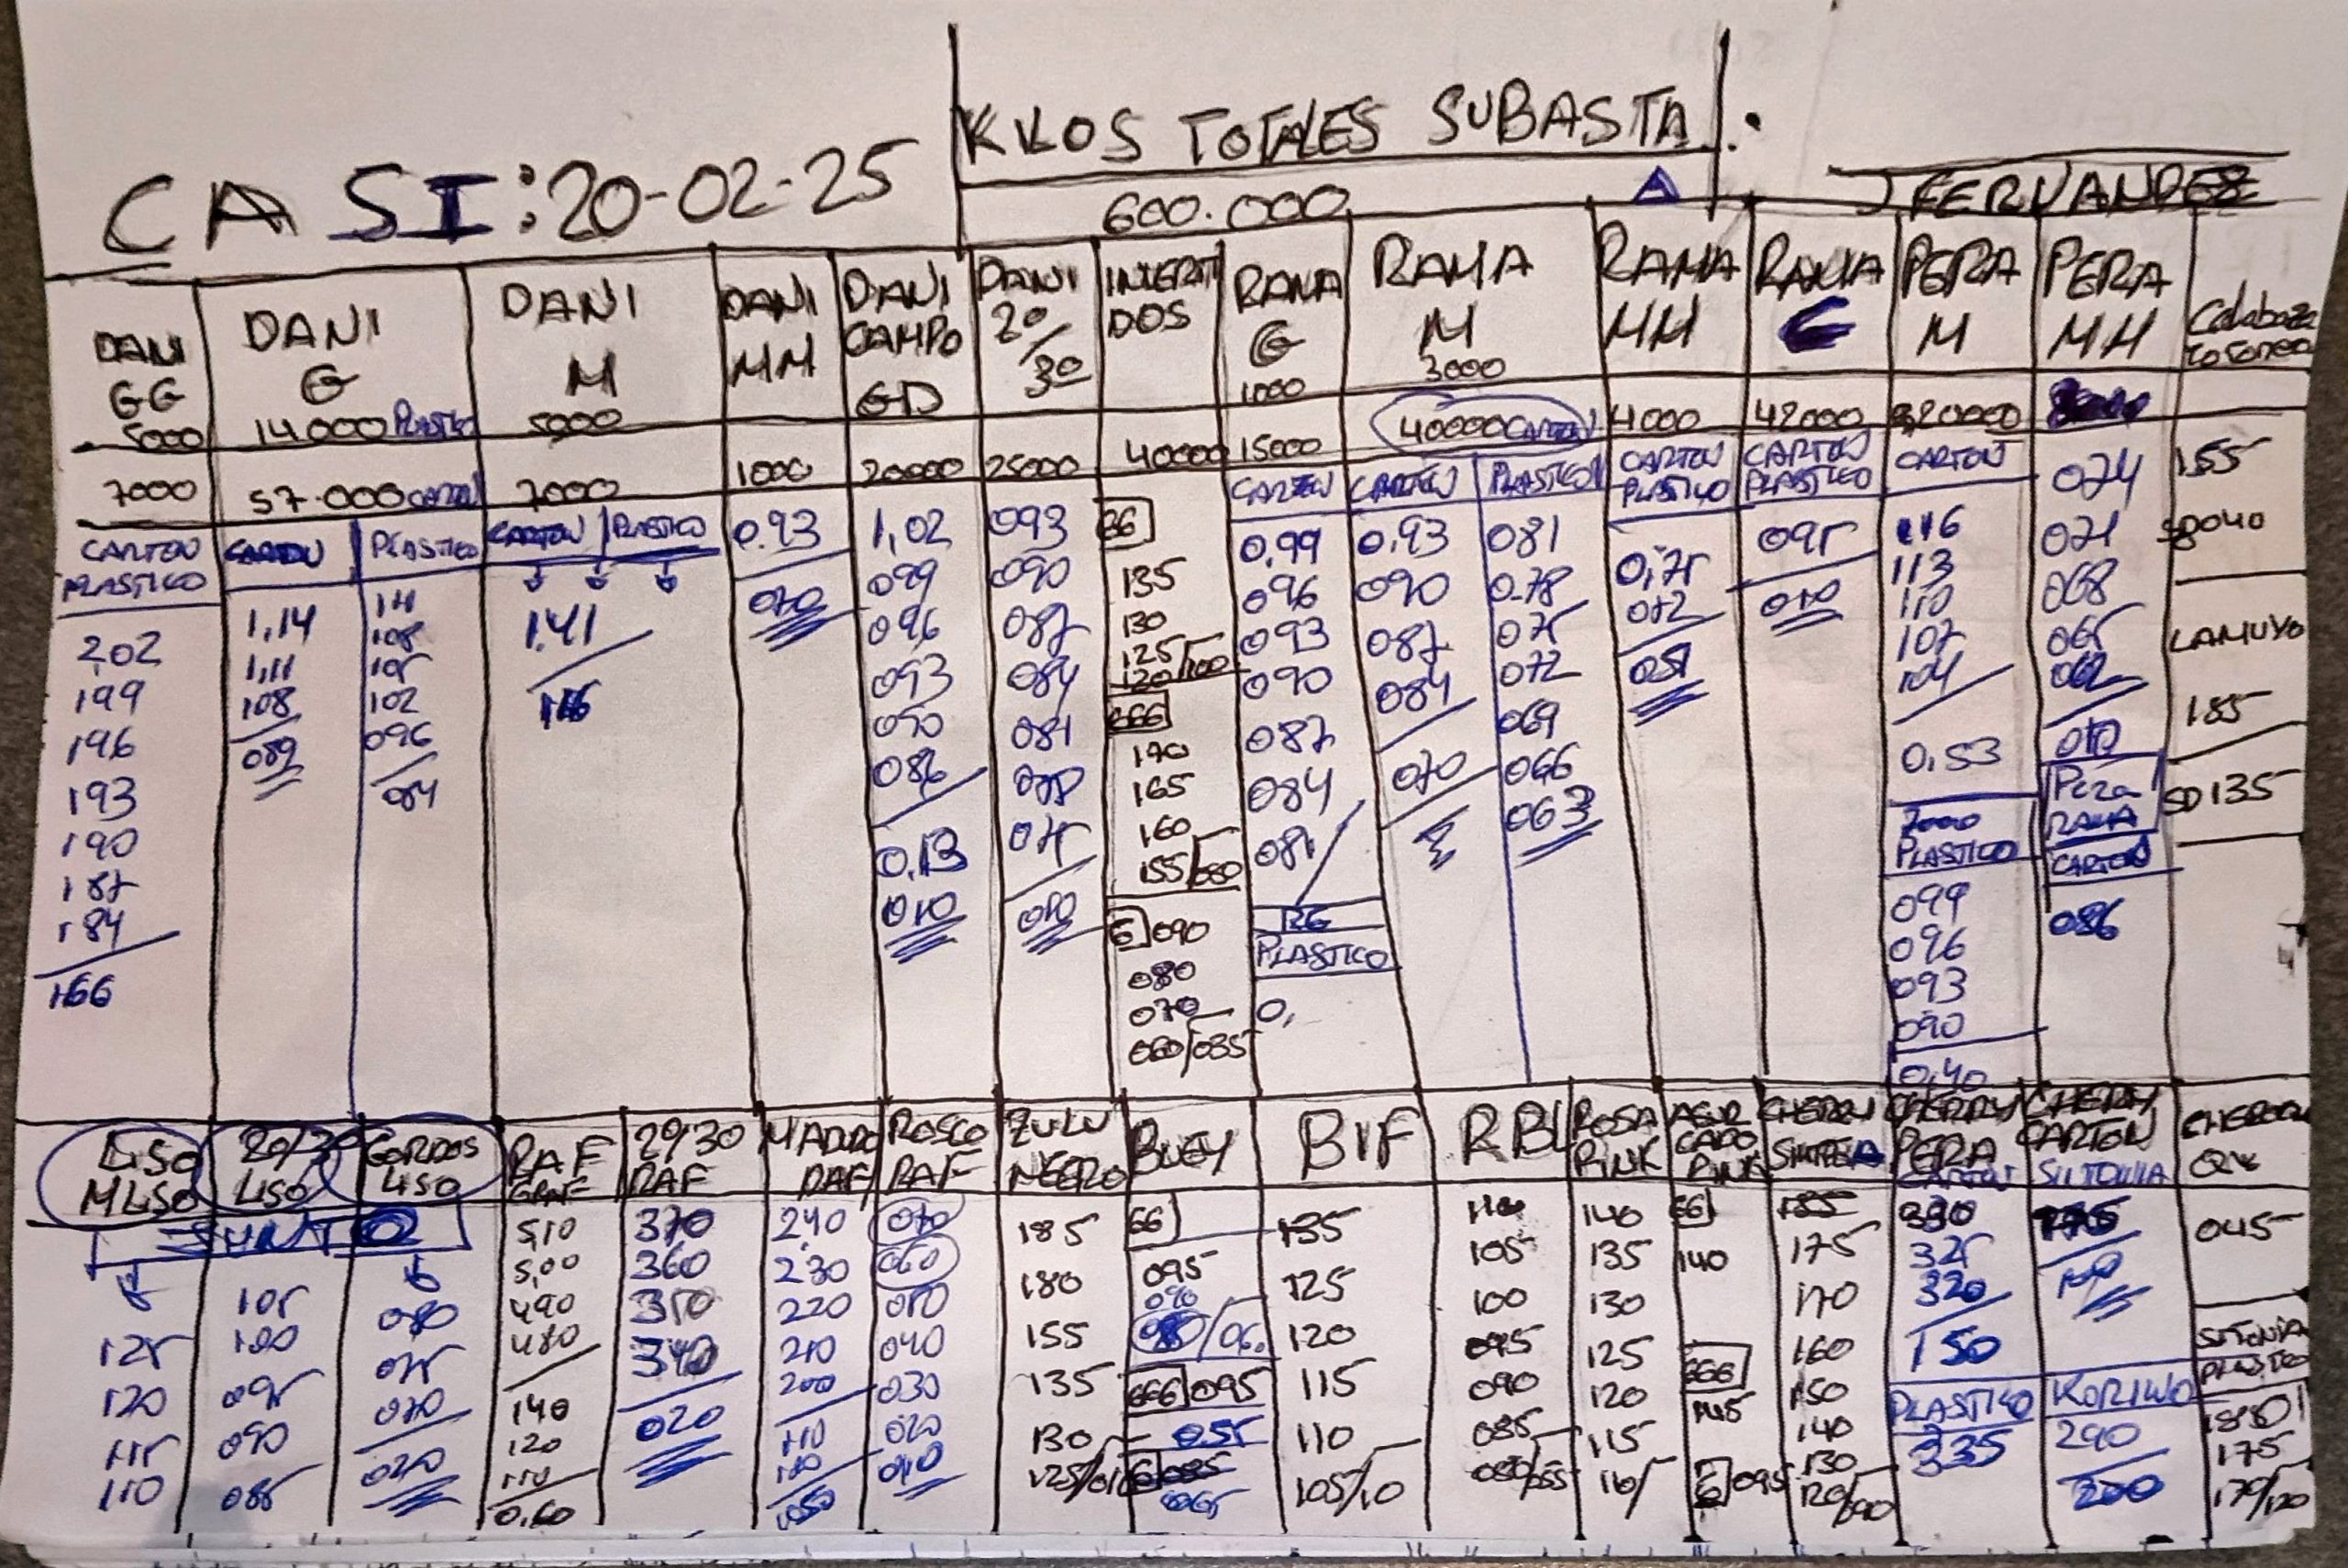 KILOS TOTALES SUBASTA
CASI: 20-02-25
600.000
J FERNANDEZ
DANI GG
5000
7000
CARTON
PLASTICO
202
199
196
193
190
187
184
166
DANI
G
14.000 PLASTICO
57.000 CARTON
CARTON
1,14
1,11
108
089
PLASTICO
111
108
105
102
096
084
DANI
M
5000
7000
CARTON PLASTICO
1.41
DANI
MM
1000
0.93
070
DANI
CAMPO
GD
20000
1,02
099
096
093
086
0,13
010
DANI
20/30
25000
093
090
087
084
081
078
075
INVERTI
DOS
40000
66
135
130
125/100
120
666
170
165
160
155/080
6 090
080
070
060/035
RAMA
G
1000
15000
CARTON
0,99
096
093
090
087
084
081
RG
PLASTICO
0,
RAMA
M
3000
40000 CARTON
CARTON
0,93
090
087
084
070
PLASTICO
081
0.78
075
072
069
066
063
RAMA
MM
4000
CARTON
PLASTICO
0,75
072
051
RAMA
42000
CARTON
PLASTICO
095
010
PERA
M
20000
CARTON
116
113
110
107
104
0,53
7000
PLASTICO
099
096
093
090
0,40
PERA
MM
074
071
068
065
062
Pera
RAMA
CARTON
086
Calabaza
155
SD 040
LAMUYO
185
SD 135
LISO
M LISO
125
120
115
110
20/30
LISO
105
100
095
090
085
GORDOS
LISO
080
075
070
020
RAF
5,10
5,00
490
480
140
120
110
0.60
29/30
RAF
370
360
350
340
020
MADURO
RAF
240
230
220
210
200
110
100
050
ROSCO
RAF
070
060
050
040
030
020
010
ZULU
NEGRO
185
180
155
135
130
BUEY
66
095
090
666 095
055
BIF
135
125
120
115
110
105/10
RBL
110
105
100
095
090
085
080/055
ROSA
PINK
140
135
130
125
120
115
110/
PINK
66
140
666
145
6 095
CHERRY
185
175
170
160
150
140
130
120/090
CHERRY
PERA
CARTON
330
325
320
150
PLASTICO
335
CHERRY
CARTON
SINTONIA
100
290
200
045
SINTONIA
PLASTICO
175
170/120